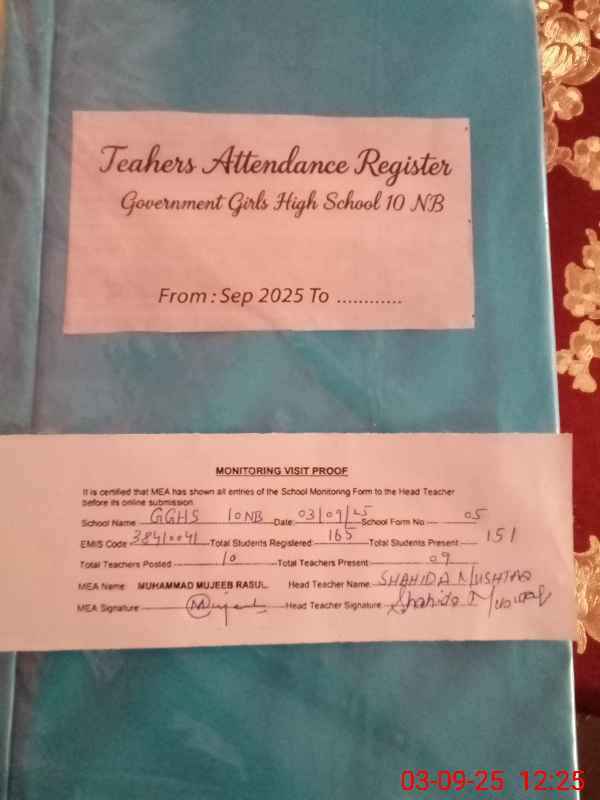 Teahers Attendance Register
Government Girls High School 10 NB
From : Sep 2025 To ............
MONITORING VISIT PROOF
It is certified that MEA has shown all entries of the School Monitoring Form to the Head Teacher
before its online submission
School Name GGHS 10 NB Date: 03/09/25 School Form No. 05
EMIS Code 38410041 Total Students Registered: 165 Total Students Present 151
Total Teachers Posted 10 Total Teachers Present: 09
MEA Name MUHAMMAD MUJEEB RASUL Head Teacher Name: SHAHIDA MUSHTAQ
MEA Signature Mujeeb Head Teacher Signature Shahida Mushtaq
03-09-25 12:25